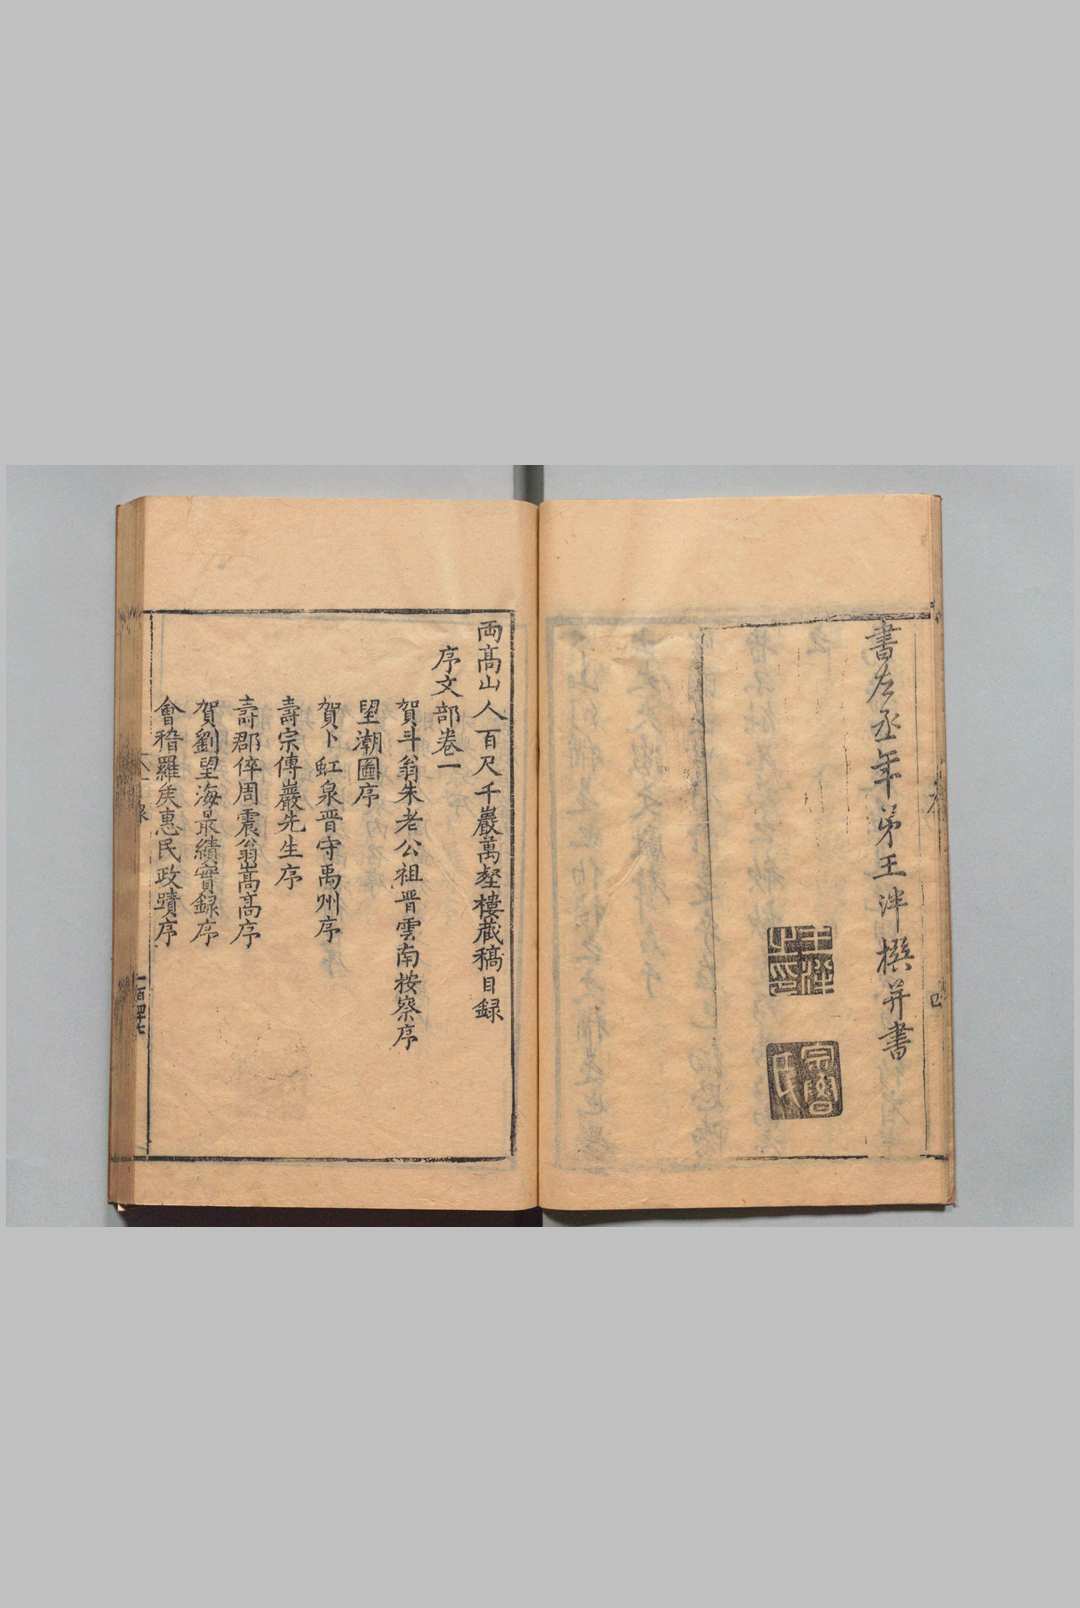 書左丞年弟王泮撰并書
王泮之印
宗魯氏
兩高山人百尺千巖萬壑樓藏稿目錄
序文部卷一
賀斗翁朱老公祖晉雲南按察序
望潮圖序
賀卜虹泉晋守禹州序
壽宗傳巖先生序
壽郡倅周震翁嵩高序
賀劉望海最績實録序
會稽羅矦惠民政蹟序